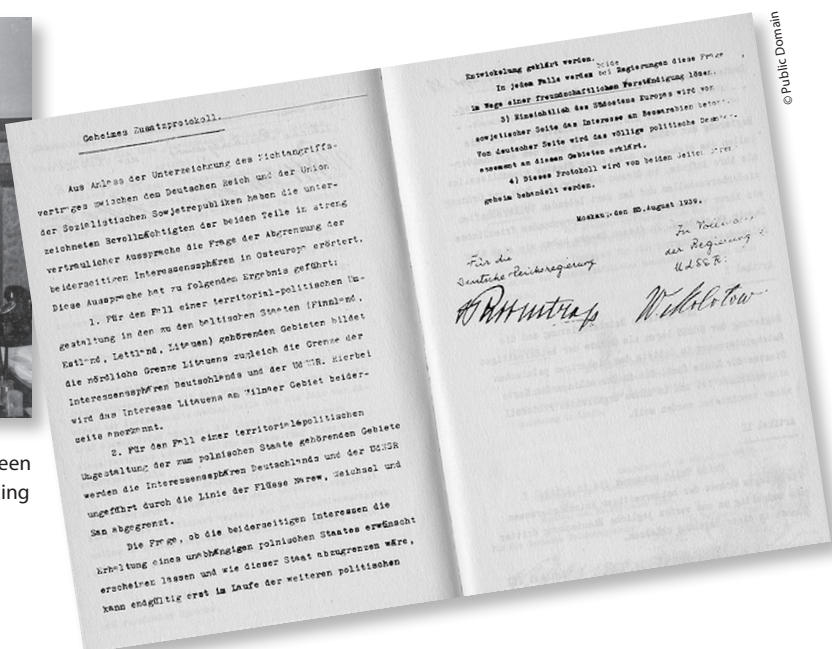 © Public Domain
een
ing
Geheimes Zusatzprotokoll.
Aus Anlass der Unterzeichnung des Nichtangriffs-
vertrages zwischen dem Deutschen Reich und der Union
der Sozialistischen Sowjetrepubliken haben die unter-
zeichneten Bevollmächtigten der beiden Teile in streng
vertraulicher Aussprache die Frage der Abgrenzung der
beiderseitigen Interessensphären in Osteuropa erörtert.
Diese Aussprache hat zu folgendem Ergebnis geführt:
1. Für den Fall einer territorial-politischen Um-
gestaltung in den zu den baltischen Staaten (Finnland,
Estland, Lettland, Litauen) gehörenden Gebieten bildet
die nördliche Grenze Litauens zugleich die Grenze der
Interessensphären Deutschlands und der UdSSR. Hierbei
wird das Interesse Litauens am Wilnaer Gebiet beider-
seits anerkannt.
2. Für den Fall einer territorial-politischen
Umgestaltung der zum polnischen Staate gehörenden Gebiete
werden die Interessensphären Deutschlands und der UdSSR
ungefähr durch die Linie der Flüsse Narew, Weichsel und
San abgegrenzt.
Die Frage, ob die beiderseitigen Interessen die
Erhaltung eines unabhängigen polnischen Staates erwünscht
erscheinen lassen und wie dieser Staat abzugrenzen wäre,
kann endgültig erst im Laufe der weiteren politischen
Entwickelung geklärt werden.
In jedem Falle werden beide Regierungen diese Frage
im Wege einer freundschaftlichen Verständigung lösen.
3) Hinsichtlich des Südostens Europas wird von
sowjetischer Seite das Interesse an Bessarabien
Von deutscher Seite wird das völlige politische
essement an diesen Gebieten erklärt.
4) Dieses Protokoll wird von beiden Seiten
geheim behandelt werden.
Moskau, den 23. August 1939.
Für die
Deutsche Reichsregierung
Ribbentrop
In Vollmacht
der Regierung
UdSSR:
W. Molotow